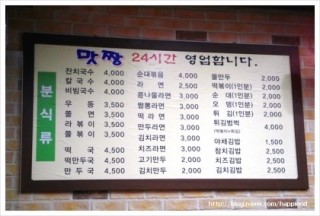 맛짱 24시간 영업합니다.
분식류
잔치국수 4,000
칼국수 4,000
비빔국수 4,000
우동 3,500
쫄면 3,500
라볶이 3,500
떡국 4,500
떡만두국 4,500
만두국 4,500
순대볶음 4,000
라면 2,500
콩나물라면 3,000
짬뽕라면 3,000
떡라면 3,000
만두라면 3,000
김치라면 3,000
치즈라면 3,000
고기만두 2,000
김치만두 2,000
물만두 2,000
떡볶이(1인분) 2,000
순대(1인분) 2,000
오뎅(1인분) 2,000
튀김(1인분) 2,000
튀김범벅 4,000
야채김밥 1,500
참치김밥 2,500
치즈김밥 2,000
김치김밥 2,000